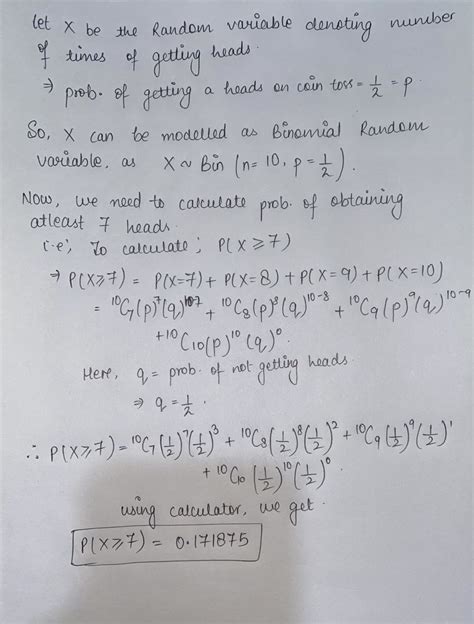 let X be the Random variable denoting number
of times of getting heads.
⇒ prob. of getting a heads on coin toss = 1/2 = p.
So, X can be modelled as Binomial Random
variable, as X ~ Bin (n=10, p=1/2).
Now, we need to calculate prob. of obtaining
atleast 7 heads.
(i.e; To calculate; P(X⩾7)
⇒ P(X⩾7) = P(X=7) + P(X=8) + P(X=9) + P(X=10)
= ¹⁰C₇(p)⁷(q)¹⁰⁻⁷ + ¹⁰C₈(p)⁸(q)¹⁰⁻⁸ + ¹⁰C₉(p)⁹(q)¹⁰⁻⁹
+ ¹⁰C₁₀(p)¹⁰(q)⁰.
Here, q = prob. of not getting heads.
⇒ q = 1/2.
∴ P(X⩾7) = ¹⁰C₇(1/2)⁷(1/2)³ + ¹⁰C₈(1/2)⁸(1/2)² + ¹⁰C₉(1/2)⁹(1/2)¹
+ ¹⁰C₁₀(1/2)¹⁰(1/2)⁰.
using calculator, we get.
P(X⩾7) = 0.171875